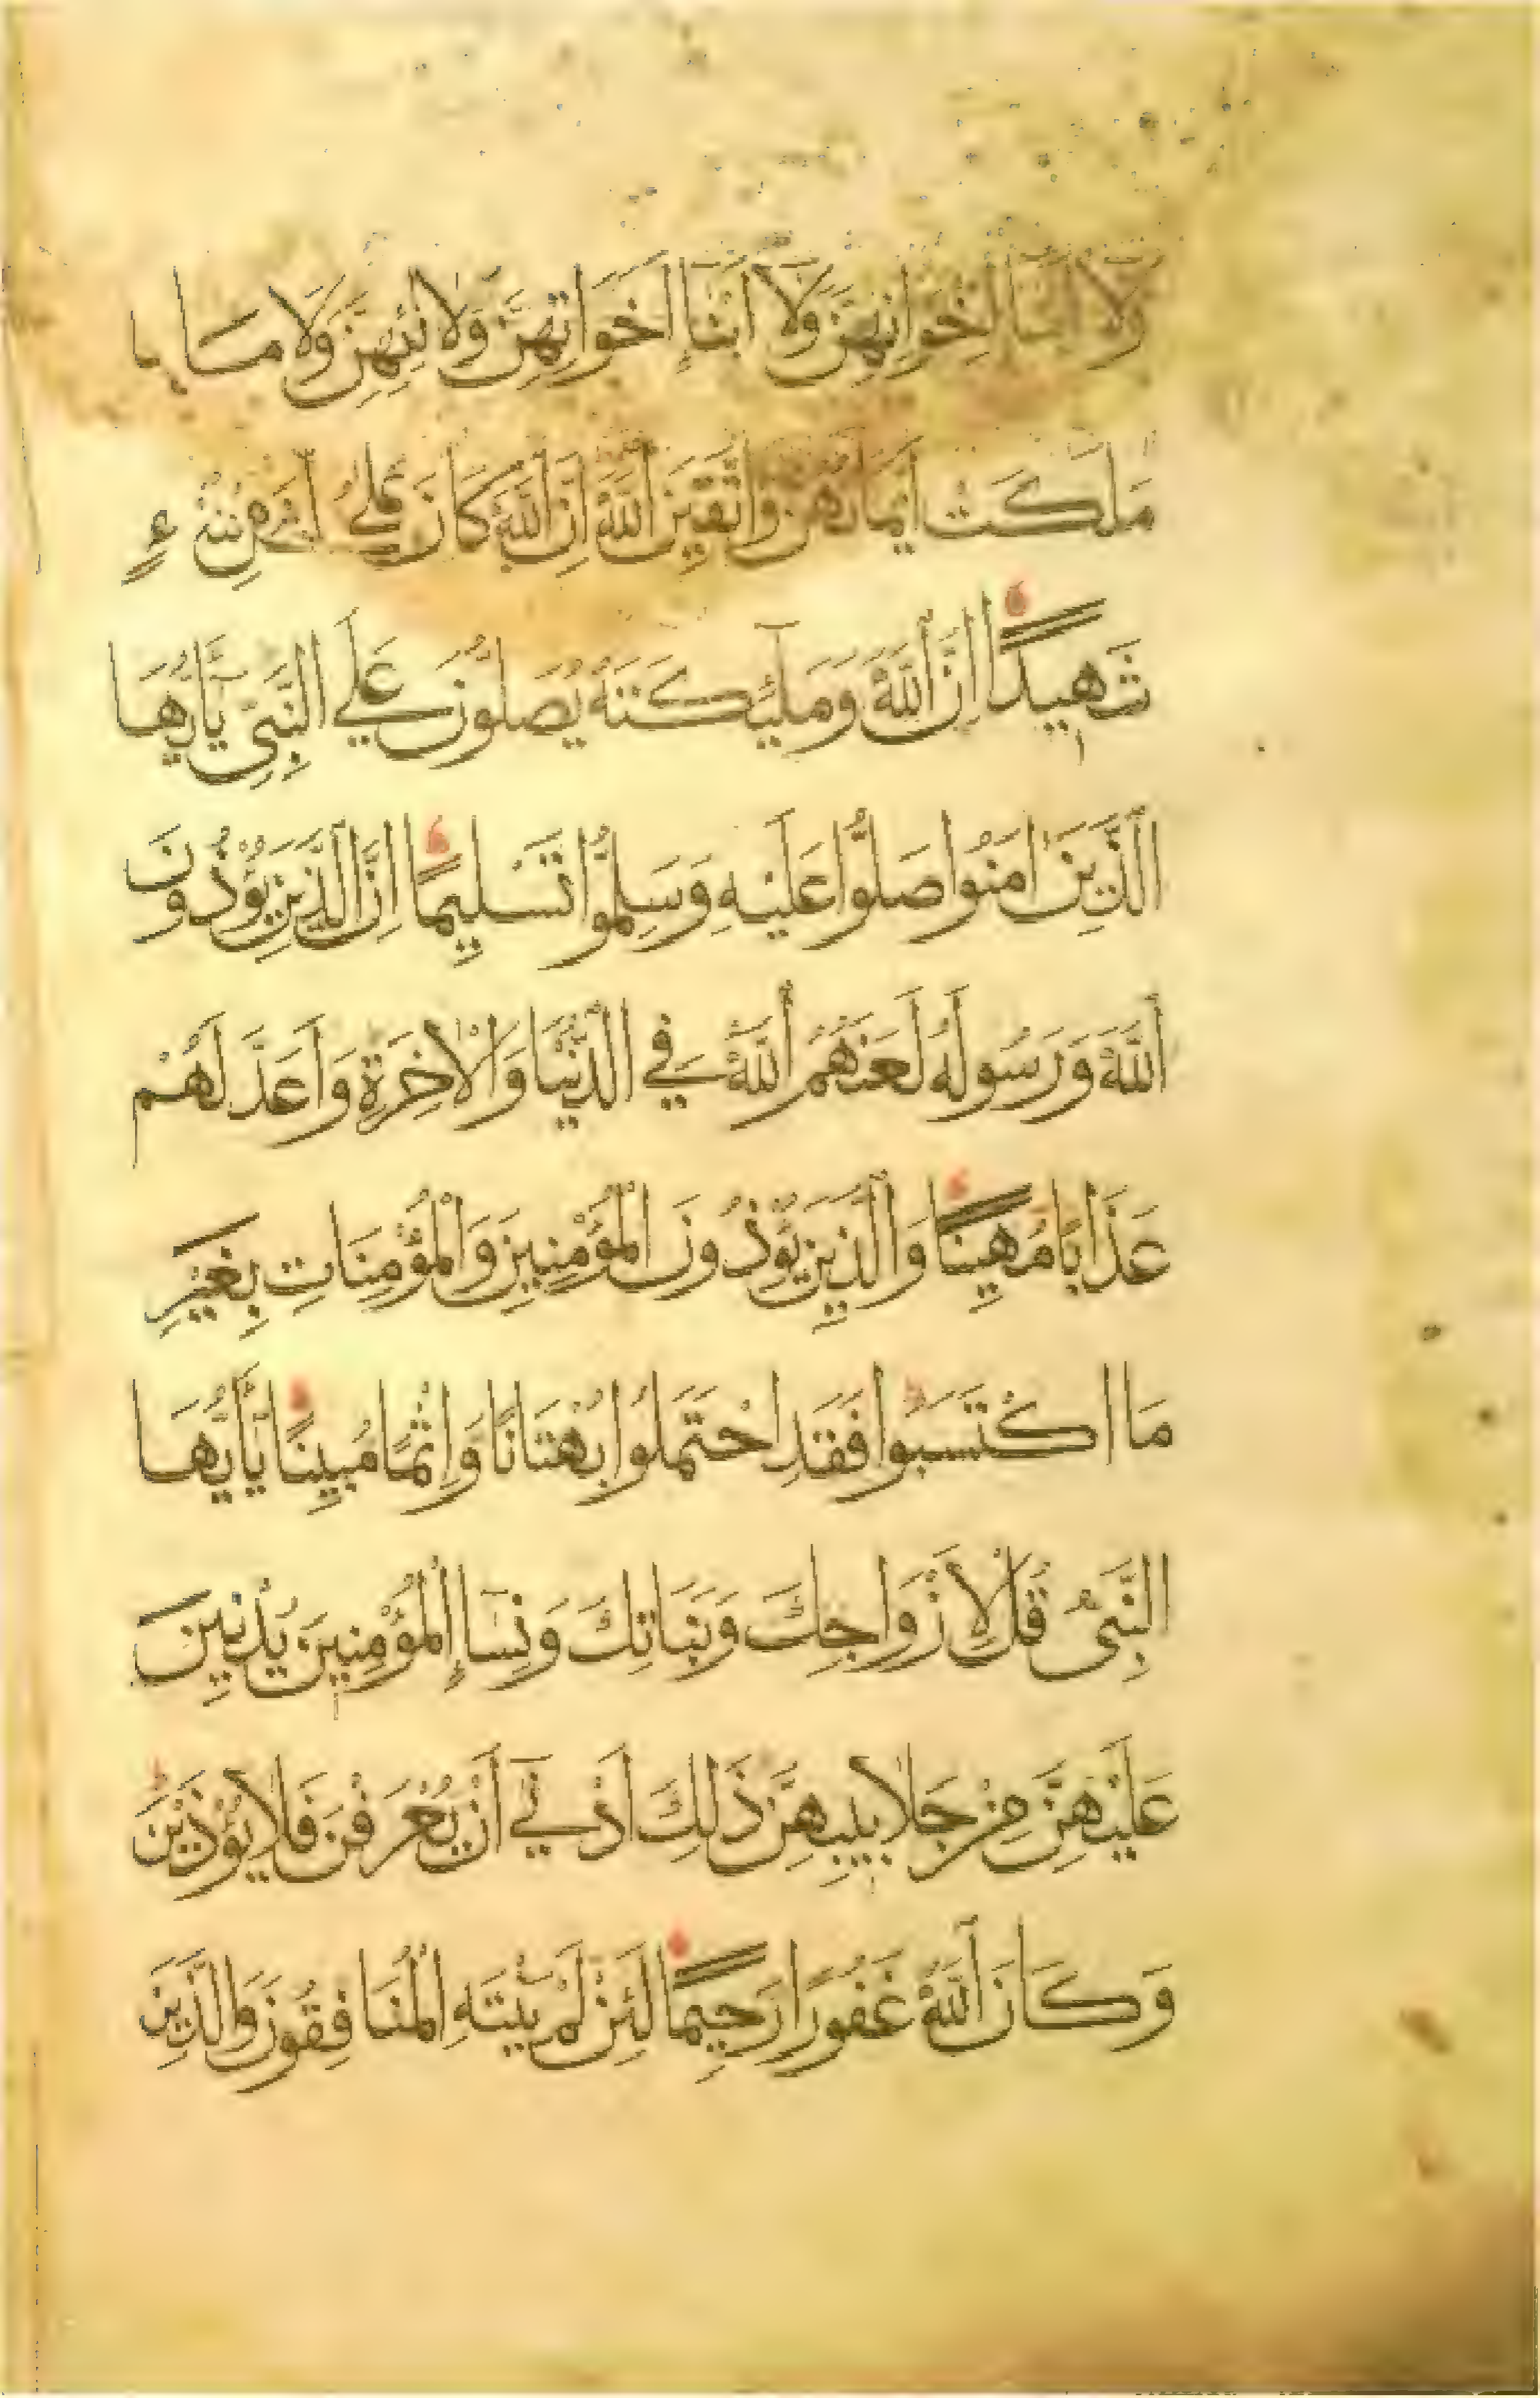 وَلَا أَبْنَاءِ إِخْوَانِهِنَّ وَلَا أَبْنَاءِ أَخَوَاتِهِنَّ وَلَا نِسَائِهِنَّ وَلَا مَا
مَلَكَتْ أَيْمَانُهُنَّ وَاتَّقِينَ اللَّهَ إِنَّ اللَّهَ كَانَ عَلَى كُلِّ شَيْءٍ
شَهِيدًا إِنَّ اللَّهَ وَمَلَئِكَتَهُ يُصَلُّونَ عَلَى النَّبِيِّ يَا أَيُّهَا
الَّذِينَ آمَنُوا صَلُّوا عَلَيْهِ وَسَلِّمُوا تَسْلِيمًا إِنَّ الَّذِينَ يُؤْذُونَ
اللَّهَ وَرَسُولَهُ لَعَنَهُمُ اللَّهُ فِي الدُّنْيَا وَالْآخِرَةِ وَأَعَدَّ لَهُمْ
عَذَابًا مُهِينًا وَالَّذِينَ يُؤْذُونَ الْمُؤْمِنِينَ وَالْمُؤْمِنَاتِ بِغَيْرِ
مَا اكْتَسَبُوا فَقَدِ احْتَمَلُوا بُهْتَانًا وَإِثْمًا مُبِينًا يَا أَيُّهَا
النَّبِيُّ قُلْ لِأَزْوَاجِكَ وَبَنَاتِكَ وَنِسَاءِ الْمُؤْمِنِينَ يُدْنِينَ
عَلَيْهِنَّ مِنْ جَلَابِيبِهِنَّ ذَلِكَ أَدْنَى أَنْ يُعْرَفْنَ فَلَا يُؤْذَيْنَ
وَكَانَ اللَّهُ غَفُورًا رَحِيمًا لَئِنْ لَمْ يَنْتَهِ الْمُنَافِقُونَ وَالَّذِينَ